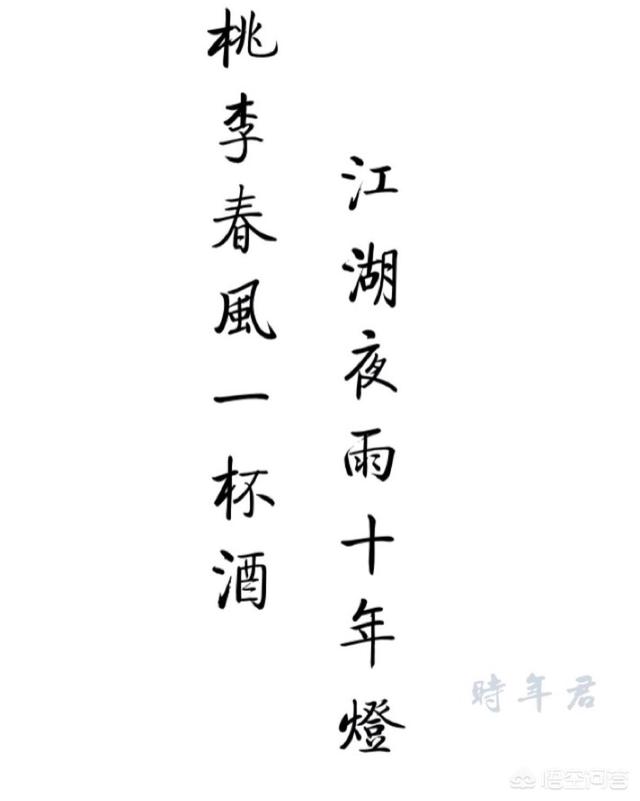 桃李春風一杯酒
江湖夜雨十年燈
時年君
悟空问答